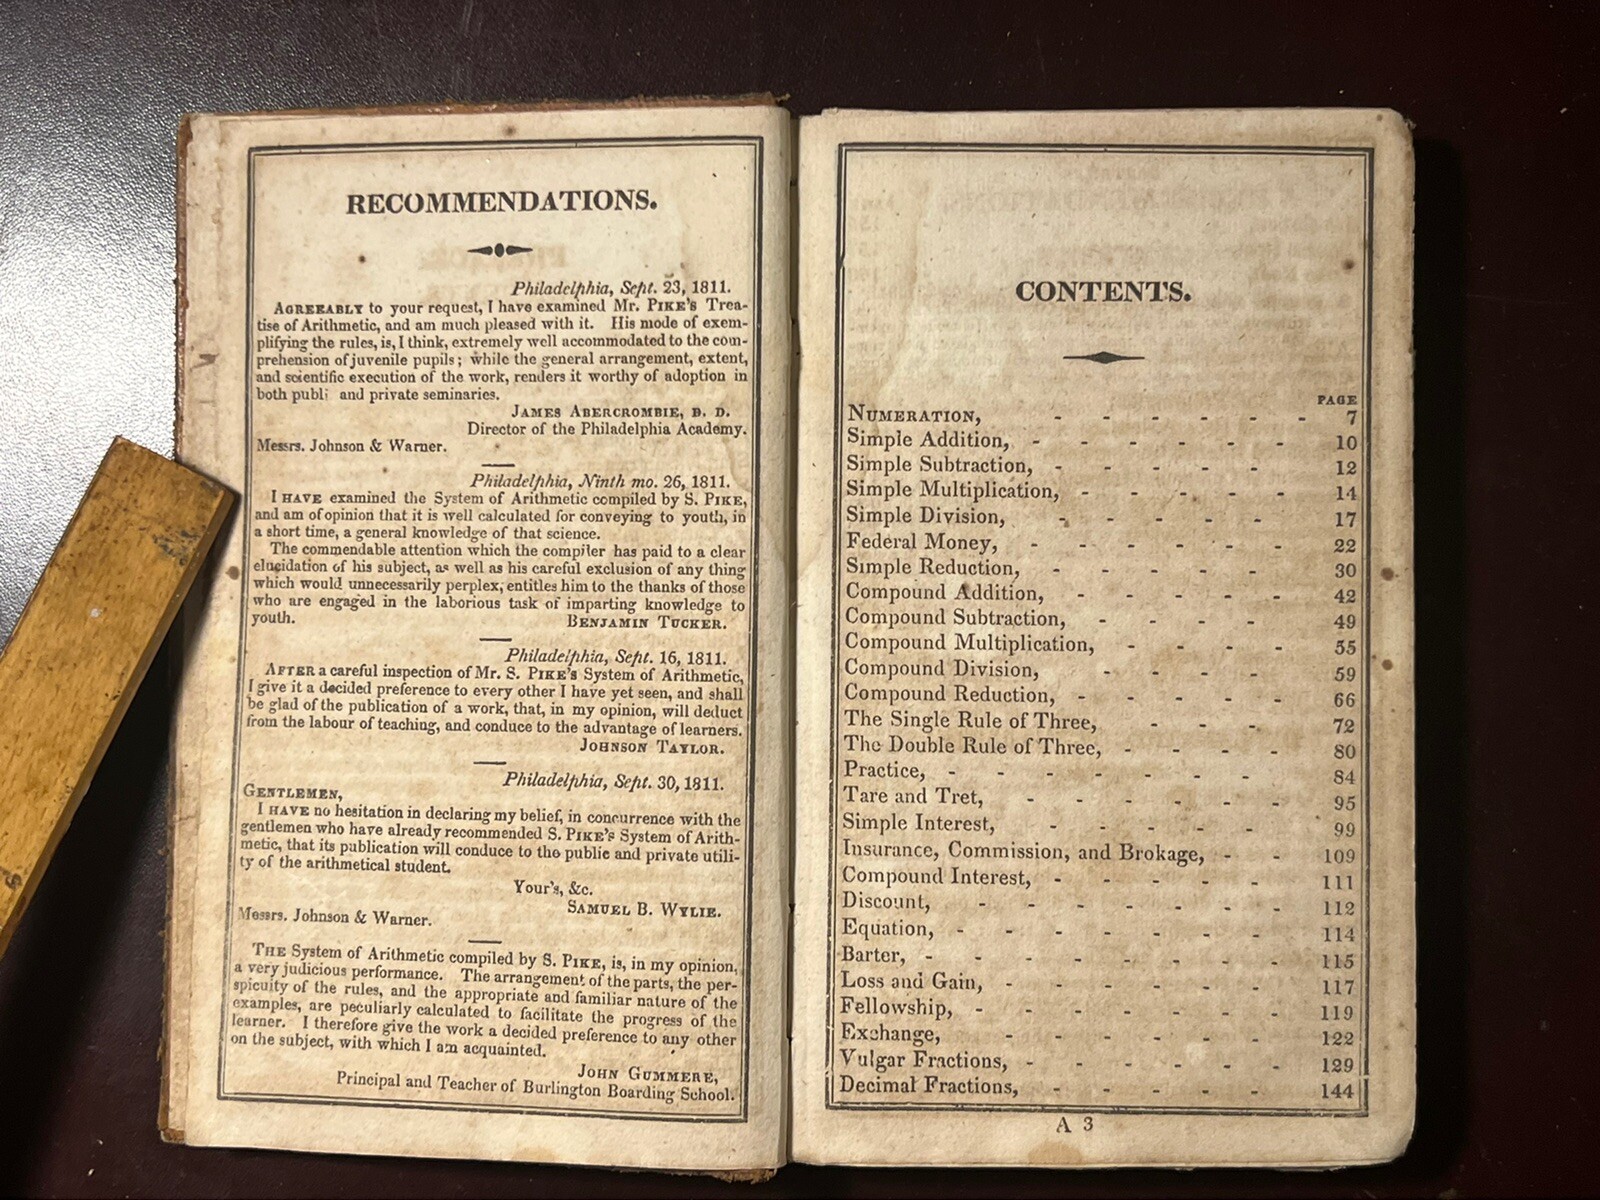 RECOMMENDATIONS.
Philadelphia, Sept. 23, 1811.
AGREEABLY to your request, I have examined Mr. PIKE'S Trea-
tise of Arithmetic, and am much pleased with it. His mode of exem-
plifying the rules, is, I think, extremely well accommodated to the com-
prehension of juvenile pupils; while the general arrangement, extent,
and scientific execution of the work, renders it worthy of adoption in
both publi and private seminaries.
JAMES ABERCROMBIE, D. D.
Director of the Philadelphia Academy.
Messrs. Johnson & Warner.
Philadelphia, Ninth mo. 26, 1811.
I HAVE examined the System of Arithmetic compiled by S. PIKE,
and am of opinion that it is well calculated for conveying to youth, in
a short time, a general knowledge of that science.
The commendable attention which the compiler has paid to a clear
elucidation of his subject, as well as his careful exclusion of any thing
which would unnecessarily perplex, entitles him to the thanks of those
who are engaged in the laborious task of imparting knowledge to
youth. BENJAMIN TUCKER.
Philadelphia, Sept. 16, 1811.
AFTER a careful inspection of Mr. S. PIKE'S System of Arithmetic,
I give it a decided preference to every other I have yet seen, and shall
be glad of the publication of a work, that, in my opinion, will deduct
from the labour of teaching, and conduce to the advantage of learners.
JOHNSON TAYLOR.
Philadelphia, Sept. 30, 1811.
GENTLEMEN,
I HAVE no hesitation in declaring my belief, in concurrence with the
gentlemen who have already recommended S. PIKE'S System of Arith-
metic, that its publication will conduce to the public and private utili-
ty of the arithmetical student.
Your's, &c.
SAMUEL B. WYLIE.
Messrs. Johnson & Warner.
THE System of Arithmetic compiled by S. PIKE, is, in my opinion,
a very judicious performance. The arrangement of the parts, the per-
spicuity of the rules, and the appropriate and familiar nature of the
examples, are peculiarly calculated to facilitate the progress of the
learner. I therefore give the work a decided preference to any other
on the subject, with which I am acquainted.
JOHN GUMMERE,
Principal and Teacher of Burlington Boarding School.
CONTENTS.
PAGE
NUMERATION, - - - - - - 7
Simple Addition, - - - - - - 10
Simple Subtraction, - - - - - 12
Simple Multiplication, - - - - - 14
Simple Division, - - - - - 17
Federal Money, - - - - - - 22
Simple Reduction, - - - - - 30
Compound Addition, - - - - - 42
Compound Subtraction, - - - - 49
Compound Multiplication, - - - - 55
Compound Division, - - - - 59
Compound Reduction, - - - - - 66
The Single Rule of Three, - - - 72
The Double Rule of Three, - - - - 80
Practice, - - - - - - - 84
Tare and Tret, - - - - - - 95
Simple Interest, - - - - - 99
Insurance, Commission, and Brokage, - - 109
Compound Interest, - - - - - 111
Discount, - - - - - - - 112
Equation, - - - - - - - 114
Barter, - - - - - - - - 115
Loss and Gain, - - - - - - 117
Fellowship, - - - - - - - 119
Exchange, - - - - - - 122
Vulgar Fractions, - - - - - - 129
Decimal Fractions, - - - - - 144
A 3